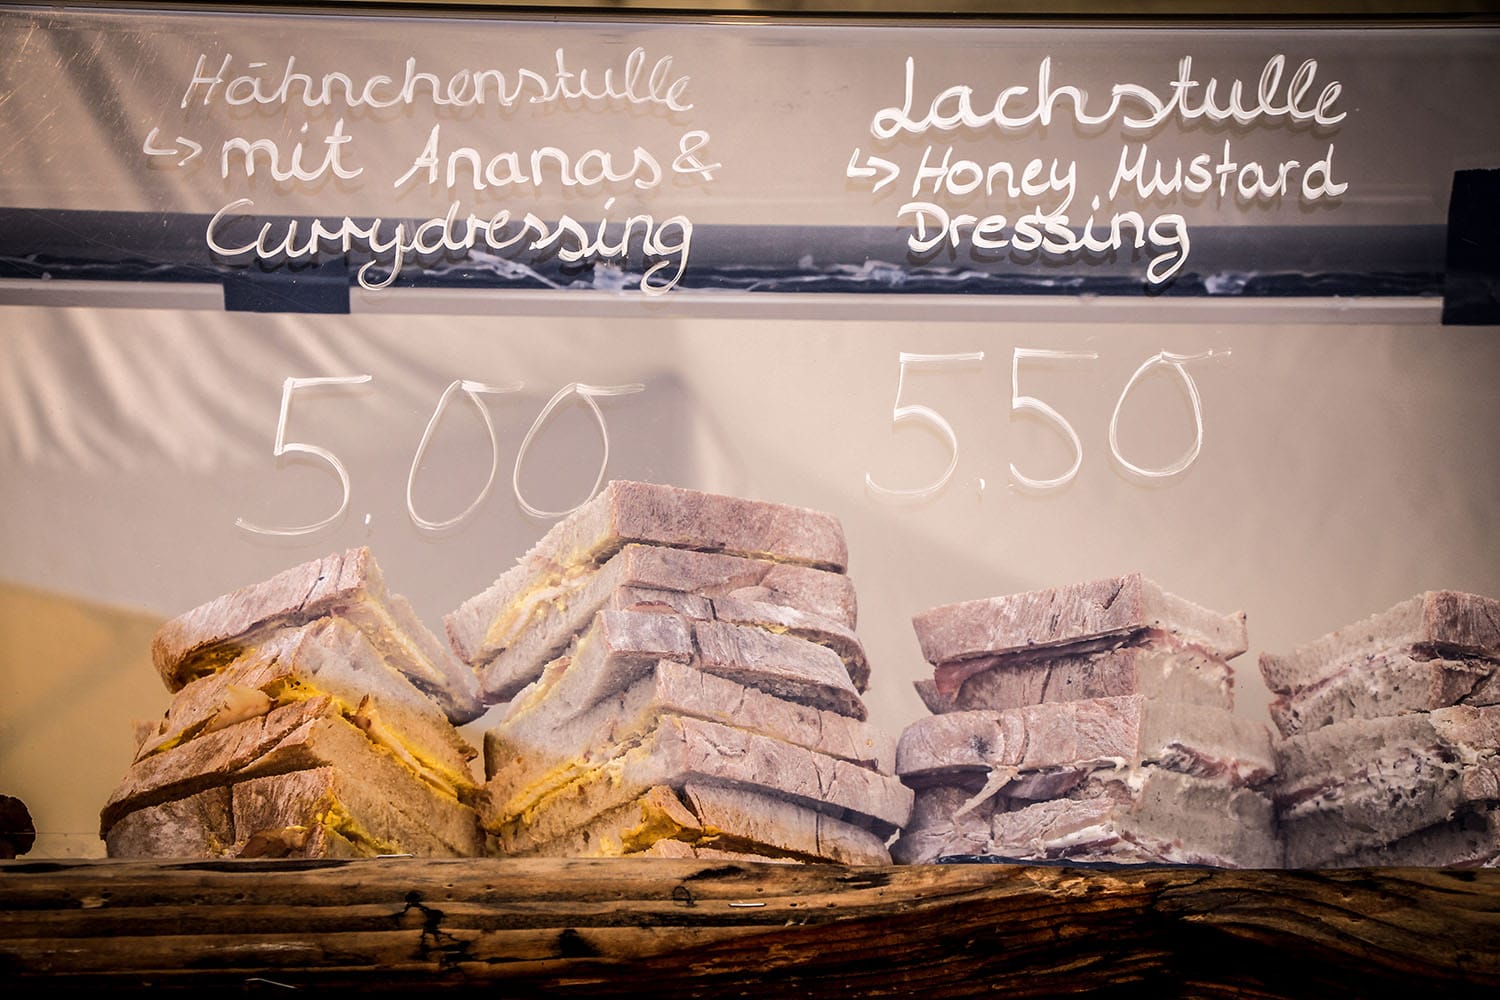 Hähnchenstulle
↳ mit Ananas &
Currydressing
5.00
Lachstulle
↳ Honey Mustard
Dressing
5.50